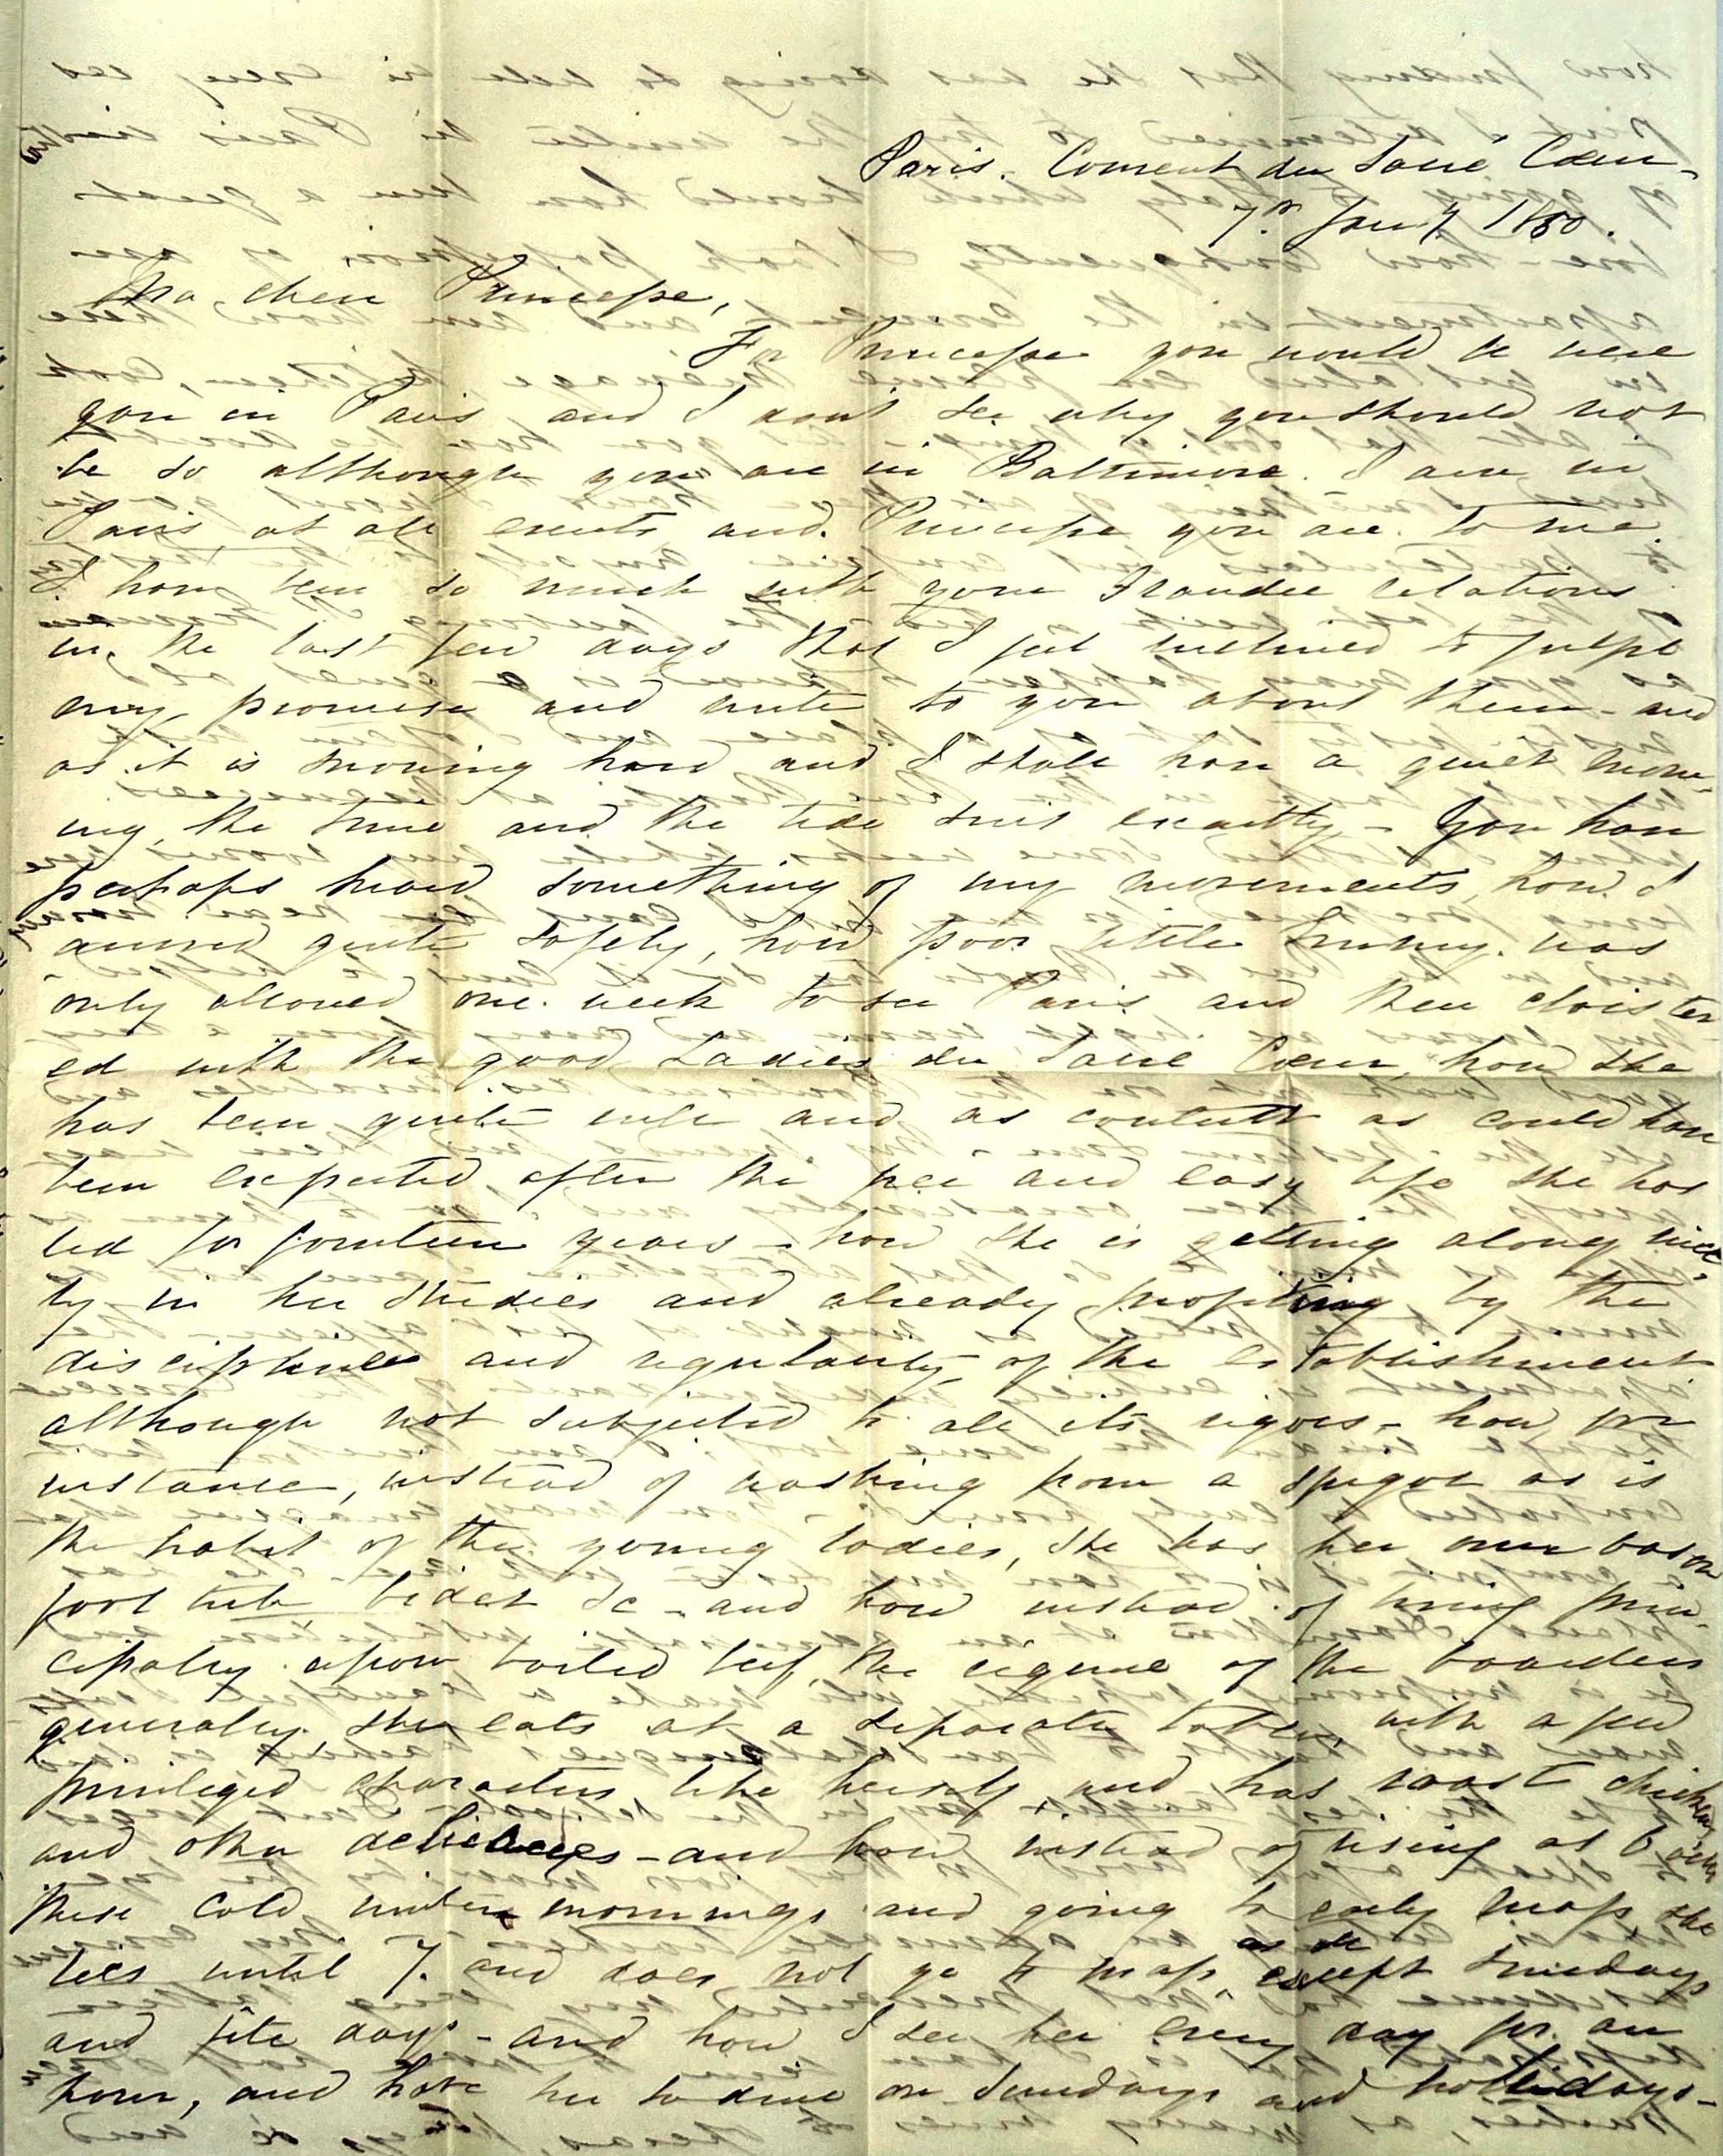 Paris. Convent du Sacré Coeur -
7th Jany. 1850.
Ma chere Princesse,
For Princesse you would be were
you in Paris and I don't see why you should not
be so although you are in Baltimore. I am in
Paris at all events and Princesse you are to me.
I have been so much with your grandee relations
in the last few days that I feel inclined to fulfil
my promise and write to you about them - and
as it is snowing hard and I shall have a quiet morn-
ing, the time and the tide suit exactly - You have
perhaps heard something of my movements, how I
arrived quite safely, how poor little was
only allowed one week to see Paris and then cloister
ed with the good Ladies du Sacré Coeur, how she
has been quite well and as content as could have
been expected after the free and easy life she has
led for fourteen years - how she is getting along nice-
ly in her studies and already profiting by the
discipline and regularity of the establishment
although not subjected to all its rigors - how, for
instance, instead of washing from a spigot as is
the habit of the young ladies, she has her own bason
foot tub, bidet &c - and how instead of living prin-
cipally upon boiled beef, the regime of the boarders
generally, she eats at a separate table, with a few
privileged characters like herself and has roast chicken
and other delicacies - and how instead of rising at 6
these cold winter mornings and going to early mass she
lies until 7. and does not go to mass, except Sundays
and fête days - and how I see her every day for an
hour, and have her to dine on Sundays and hollidays -